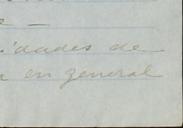 idades de
en general